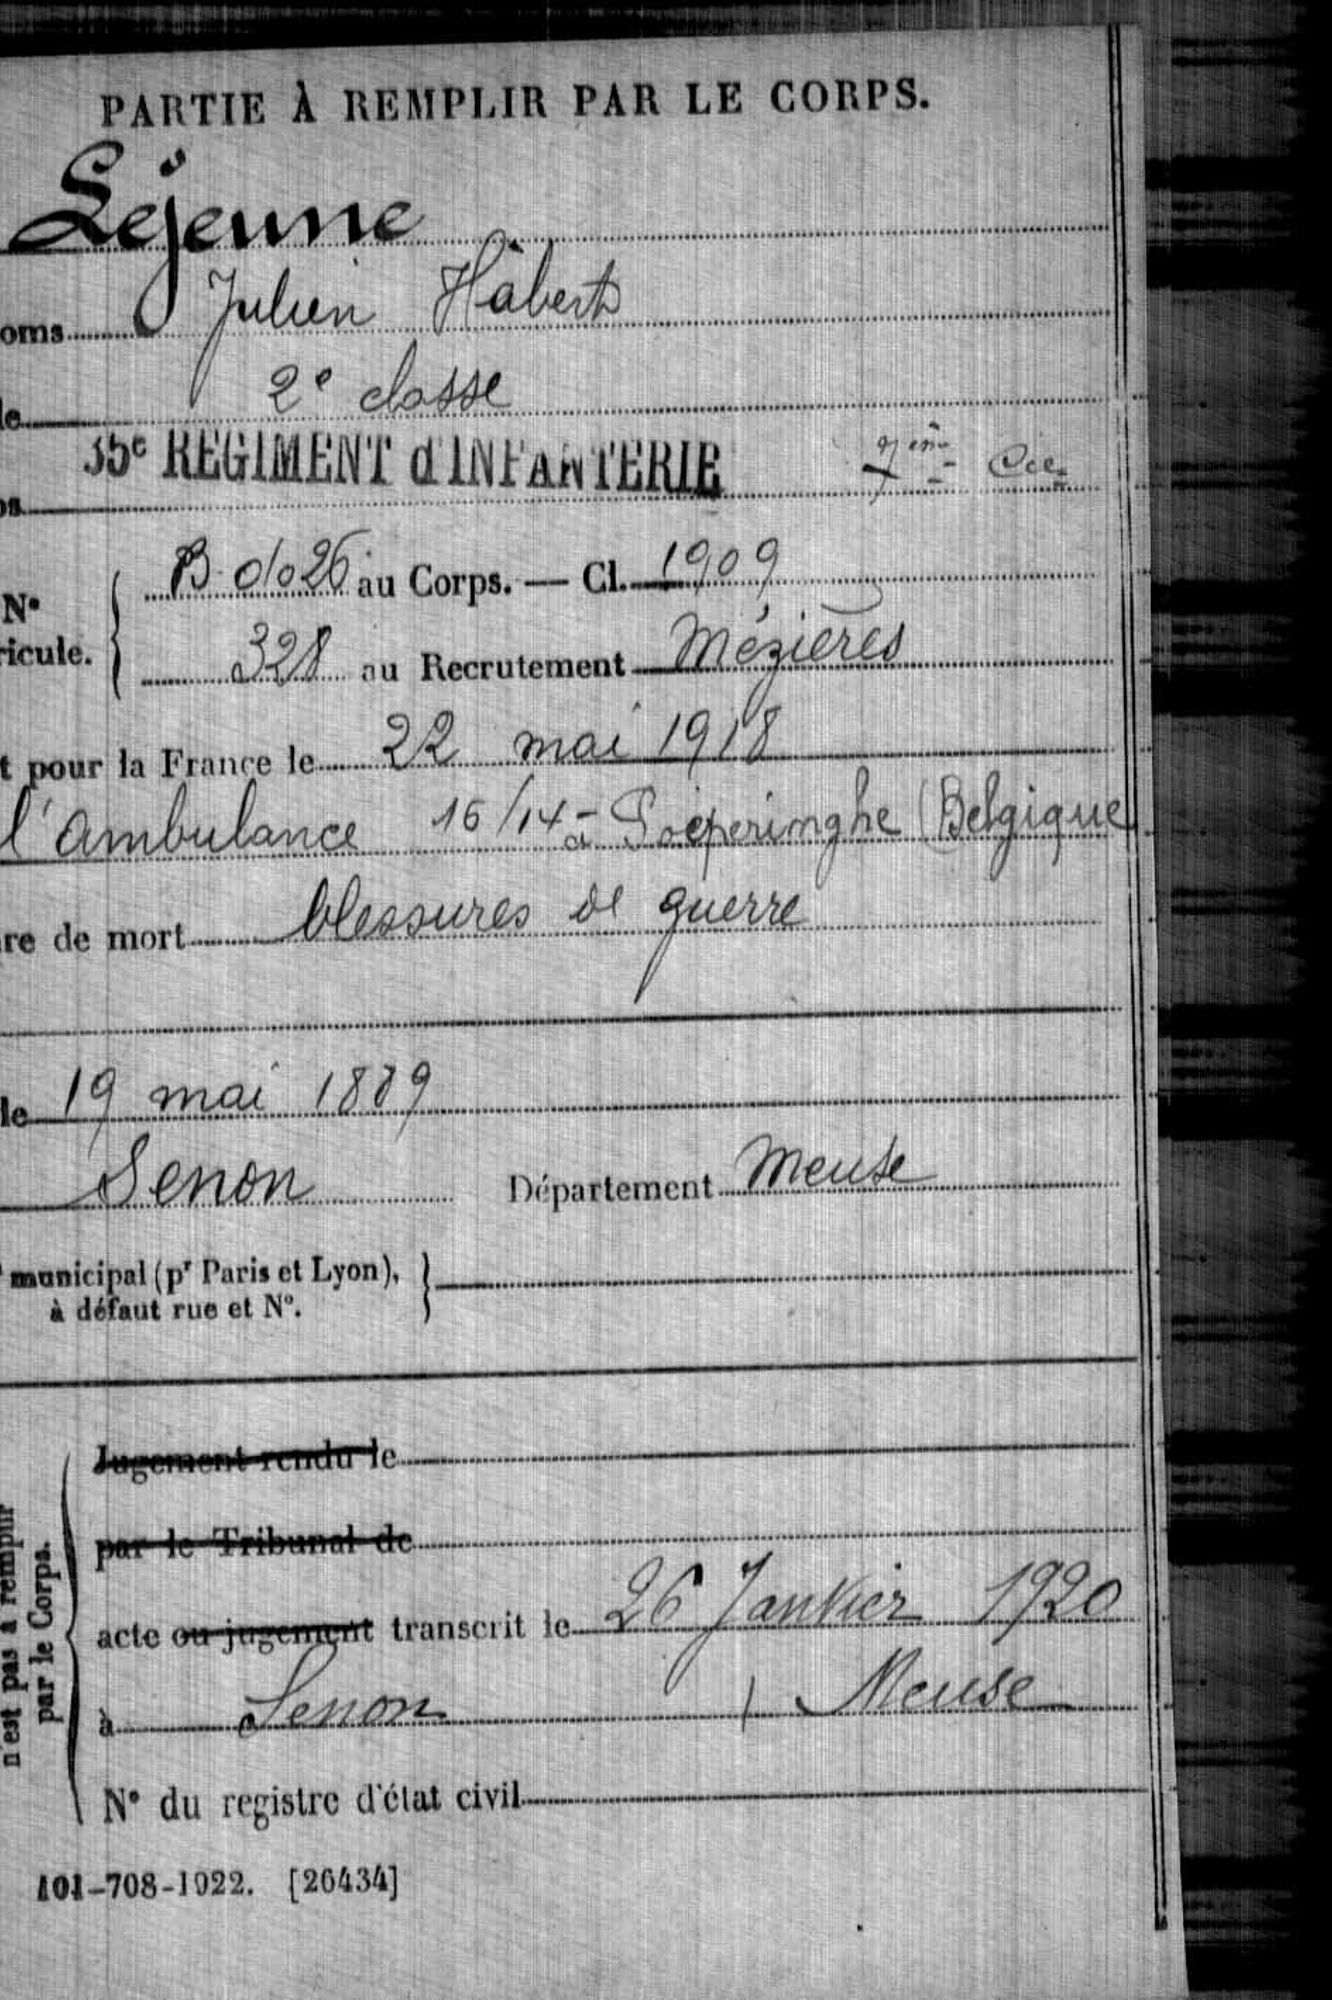 PARTIE À REMPLIR PAR LE CORPS.
Lejeune
oms Julien Hubert
le 2e classe
35e REGIMENT d'INFANTERIE 7ème Cie
os
N° au Corps. — Cl. 1909
ricule. 328 au Recrutement Mézières
t pour la France le 22 mai 1918
l'ambulance 16/14 à Poeperinghe (Belgique
re de mort blessures de guerre
le 19 mai 1889
Senon Département Meuse
municipal (pr Paris et Lyon),
à défaut rue et N°.
Jugement rendu le
par le Tribunal de
acte ou jugement transcrit le 26 Janvier 1920
à Senon Meuse
N° du registre d'état civil
n'est pas à remplir
par le Corps.
101-708-1922. [26434]